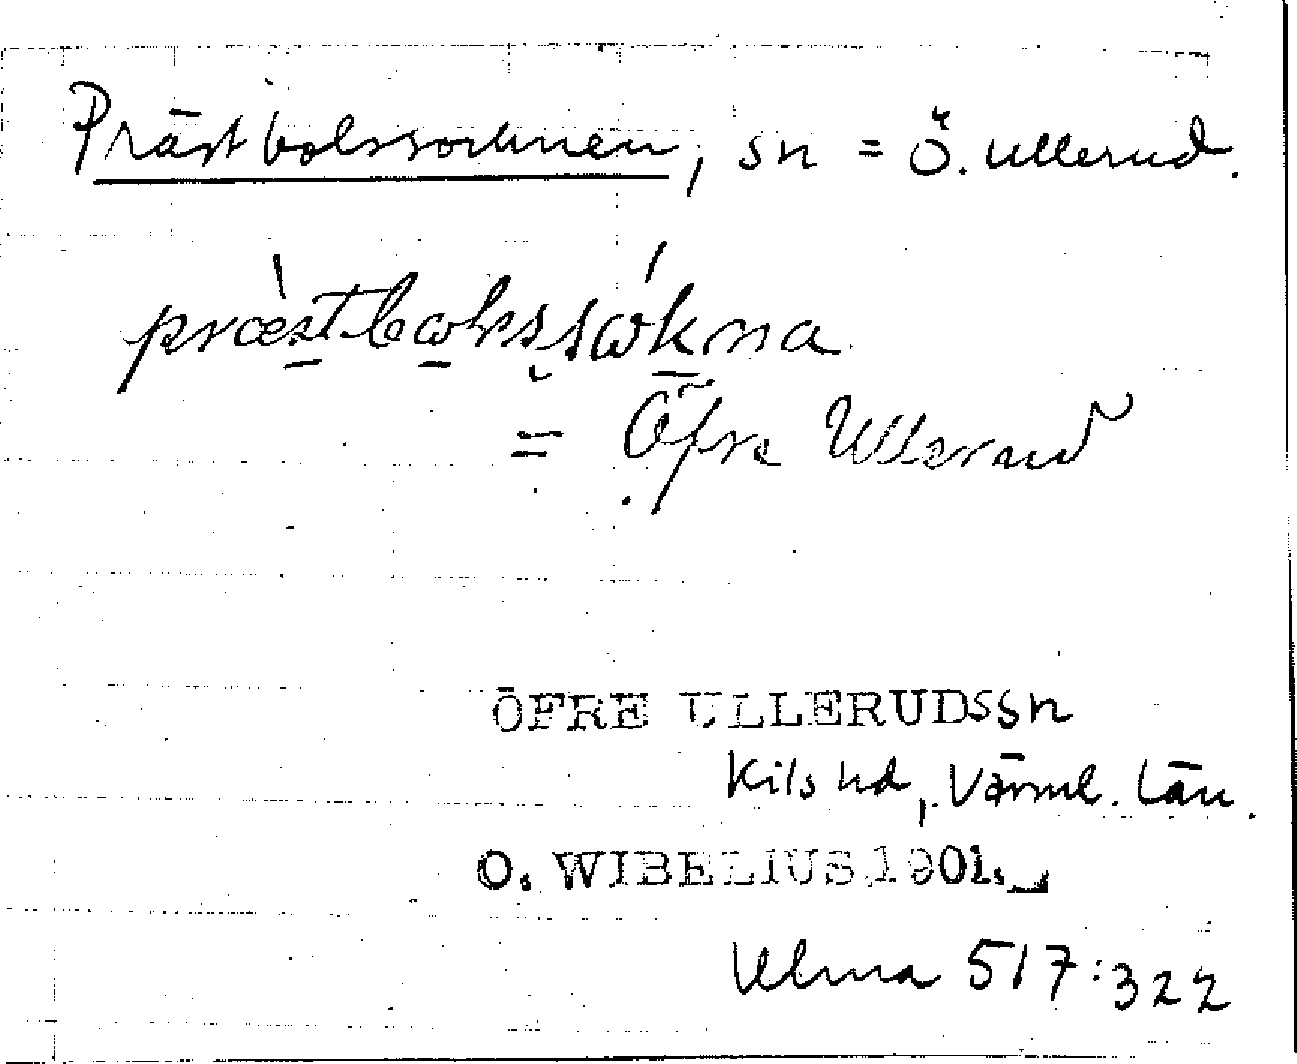 Prästbolssocknen, sn = Ö. Ullerud.
= Öfre Ullerud
ÖFRE ULLERUDSSn
Kils hd, Värml. län.
O. WIBELIUS 1901.
Ulma 517:322